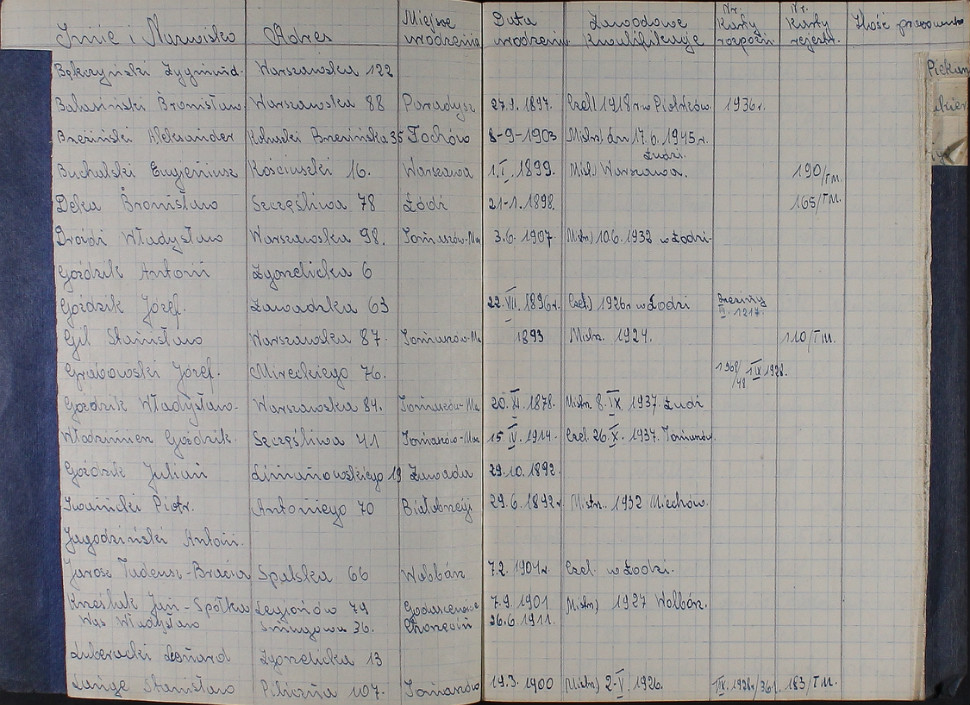 Imię i Nazwisko Adres Miejsce urodzenia Data urodzenia Zawodowe kwalifikacje Nr. Karty rozpozn. Nr. Karty rejestr. Ilość pracown
Warszawska 122
Bronisław Warszawska 88 Paradyż 27.9. 1897. Czel. 1918 r w Piotrków. 1936 r. Piekar
Aleksander Brzezińska 35 Tochów 8-9-1903 Mistrz dn 17.6.1945 r. Łódź.
Buchalski Eugeniusz Kościuszki 16. Warszawa 1.I. 1899. Warszawa. 190/T.M.
Deka Bronisław Szczęśliwa 78 Łódź 21-1.1898. 165/T.M.
Władysław Warszawska 98. Tomaszów-Ma 3.6. 1907 Mistrz 10.6.1932 w Łodzi-
Goździk Antoni Zgorzelicka 6
Goździk Józef. Zawadzka 63 22.VII. 1896 r. Czel. 1926 r w Łodzi 1217.
Gil Stanisław Warszawska 87. Tomaszów-Ma 1893 Mistrz. 1924. 110/T.M.
Grabowski Józef. Mireckiego 76. IX 1928.
Goździk Władysław. Warszawska 84. Tomaszów-Ma 20.XI 1878. Mistrz 8.IX 1937 Łódź
Włodzimierz Goździk. Szczęśliwa 41 Tomaszów-Maz 15.IV. 1914. Czel. 26.X. 1937. Tomaszów
Goździk Julian Limanowskiego 19 Zawada 29.10.1892.
Iwanicki Piotr. Antoniego 70 Białobrzegi 29.6.1892 r. Mistrz. 1932 Miechów.
Jagodziński Antoni.
Jarosz Tadeusz-Bracia Spalska 66 Wolbórz 7.2. 1901 r Czel. w Łodzi.
Jan-Spółka Legionów 79 7.9.1901 Mistrz 1927 Wolbórz.
Wąs Władysław 36. Chorzęcin 26.6.1911.
Leonard Zgorzelicka 13
Lange Stanisław Piliczna 107. Tomaszów 19.3. 1900 Mistrz 2-V. 1926. 183/T.M.